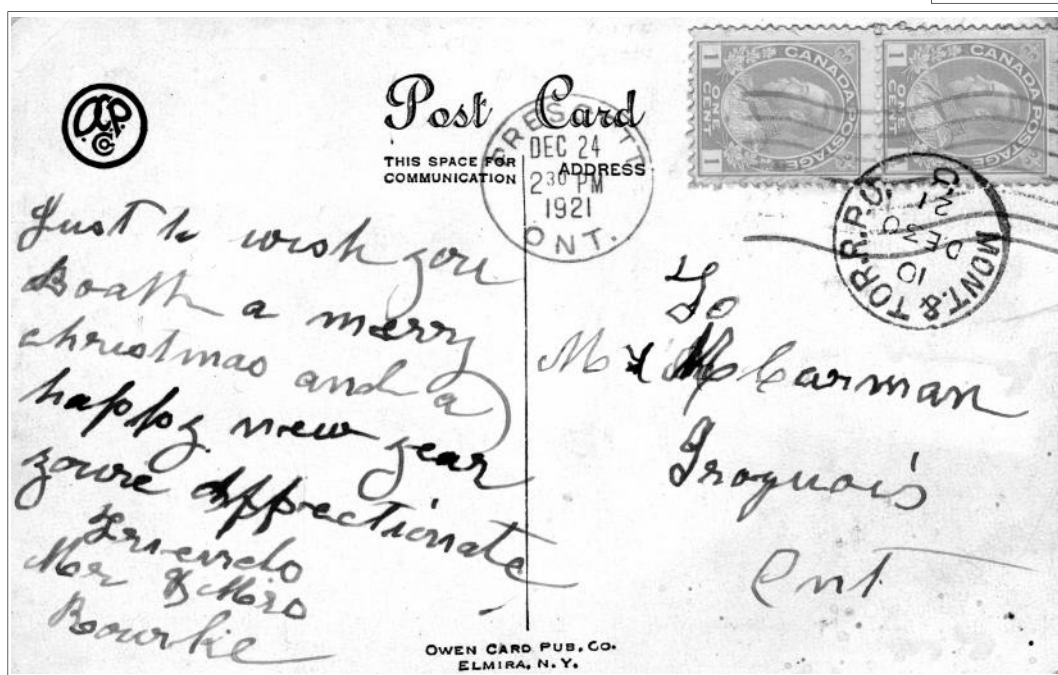 Post Card
THIS SPACE FOR
COMMUNICATION
ADDRESS
PRESCOTT
DEC 24
2 30 PM
1921
ONT.
CANADA POSTAGE
1 ONE CENT 1
CANADA POSTAGE
1 ONE CENT 1
MONT. & TOR. R.P.O.
10
DE 30
21
Just to wish you
Boath a merry
christmas and a
happy new year
youre affectionate
Friends
Mr & Mrs
Bourkie
To
M & M Carman
Iroquois
Ont
OWEN CARD PUB. CO.
ELMIRA, N. Y.